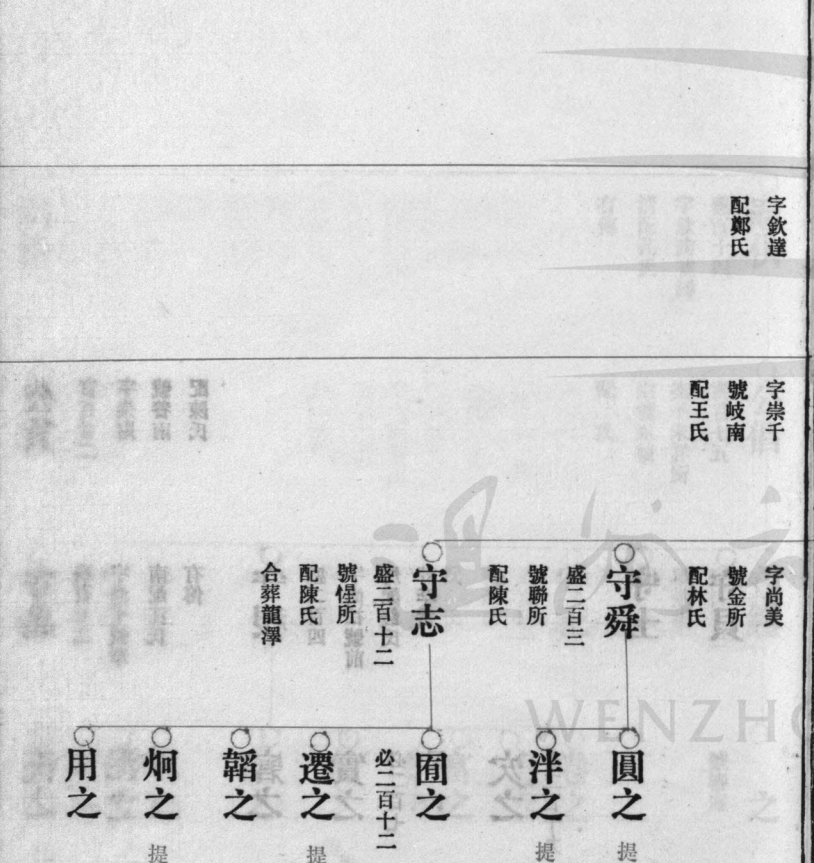 字欽達
配鄭氏
字崇千
號岐南
配王氏
字尚美
號金所
配林氏
守舜
盛二百三
號聯所
配陳氏
守志
盛二百十二
號惺所
配陳氏
合葬龍澤
圓之
提
泮之
提
囿之
必二百十二
遷之
提
韜之
炯之
提
用之
WENZHO